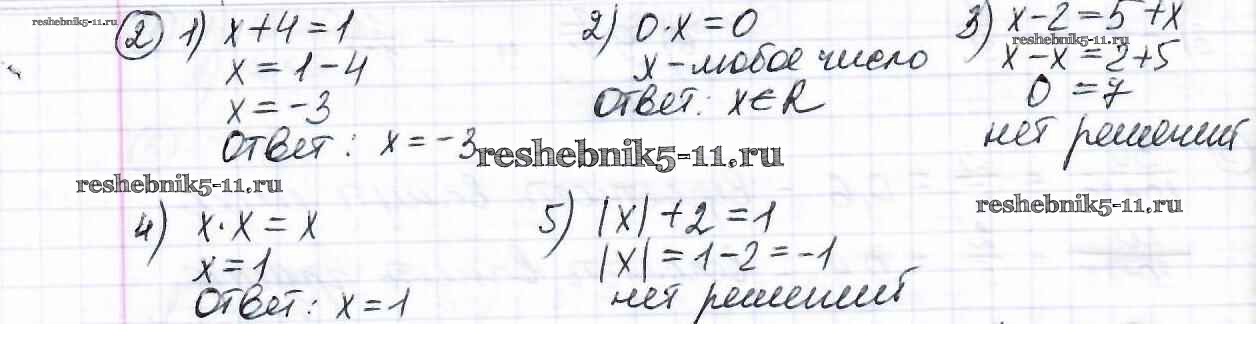 reshebnik5-11.ru
2) 1) x+4=1
x=1-4
x=-3
Ответ: x=-3
2) 0·x=0
x-любое число
Ответ: x∈R
3) x-2=5+x
reshebnik5-11.ru
x-x=2+5
0=7
нет решений
reshebnik5-11.ru
reshebnik5-11.ru
reshebnik5-11.ru
4) x·x=x
x=1
Ответ: x=1
5) |x|+2=1
|x|=1-2=-1
нет решений